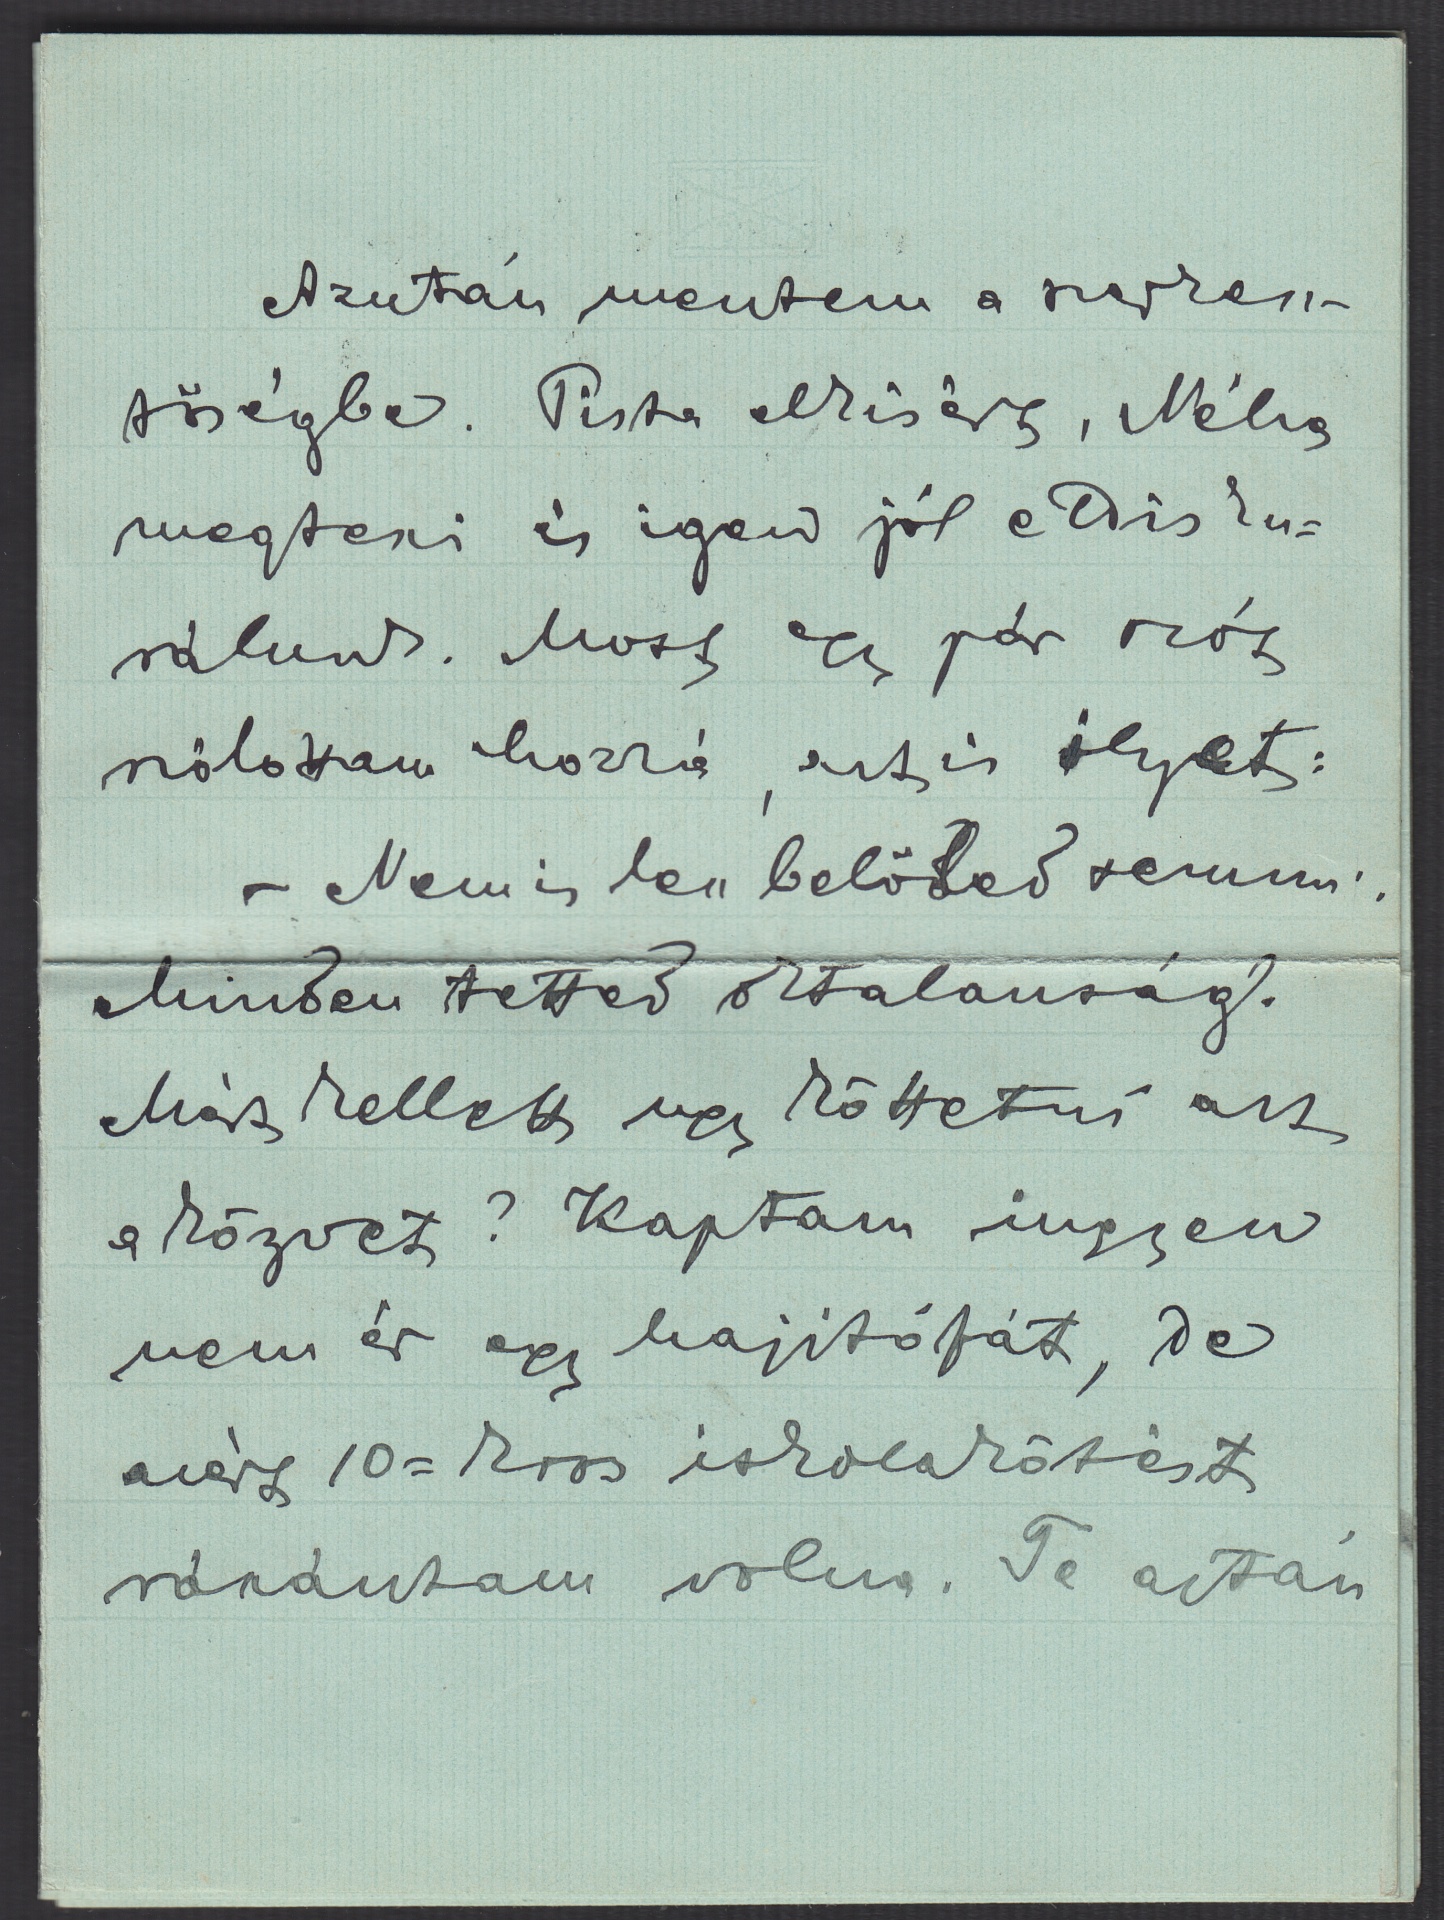 Azután mentem a szerkesz-
tőségbe. Pista elkisért, Néha
megteszi és igen jól eldisku-
rálunk. Most egy pár szót
szólottam hozzá, azt is ilyet:
– Nem is lesz belőled semmi.
Minden tetted oktalanság.
Mért kellett ugy köttetni azt
a könyvet? Kaptam ingyen
nem ér egy hajitófát, de
azért 10= koros iskolakötést
rászántam volna. Te aztán